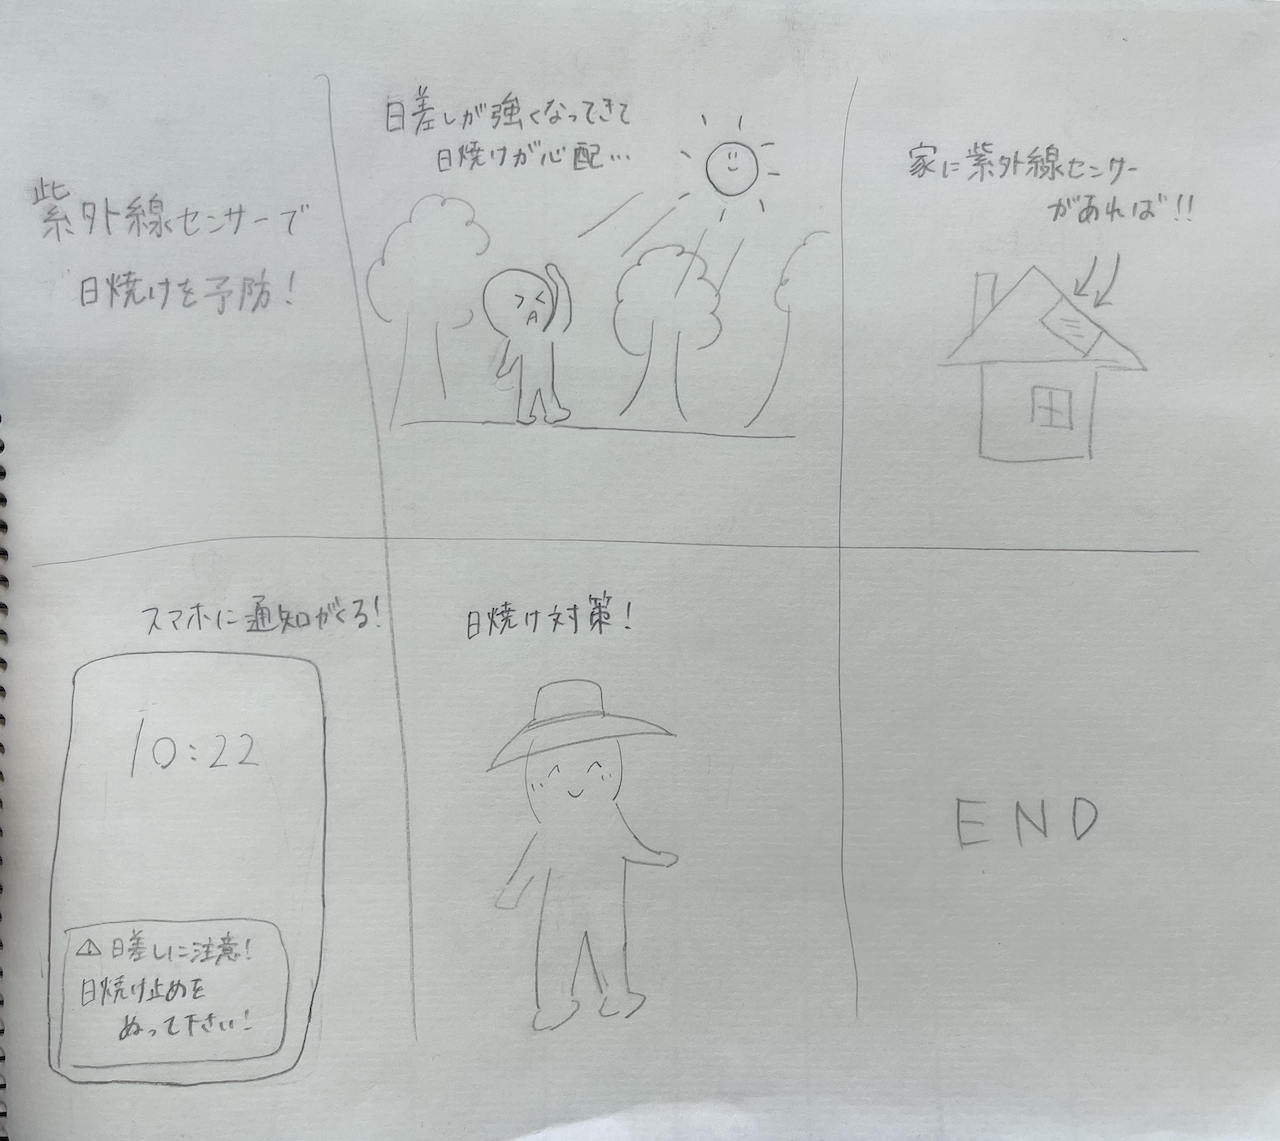 紫外線センサーで
日焼けを予防！
日差しが強くなってきて
日焼けが心配…
家に紫外線センサー
があれば!!
スマホに通知がくる！
10:22
⚠日差しに注意！
日焼け止めを
ぬって下さい！
日焼け対策！
END